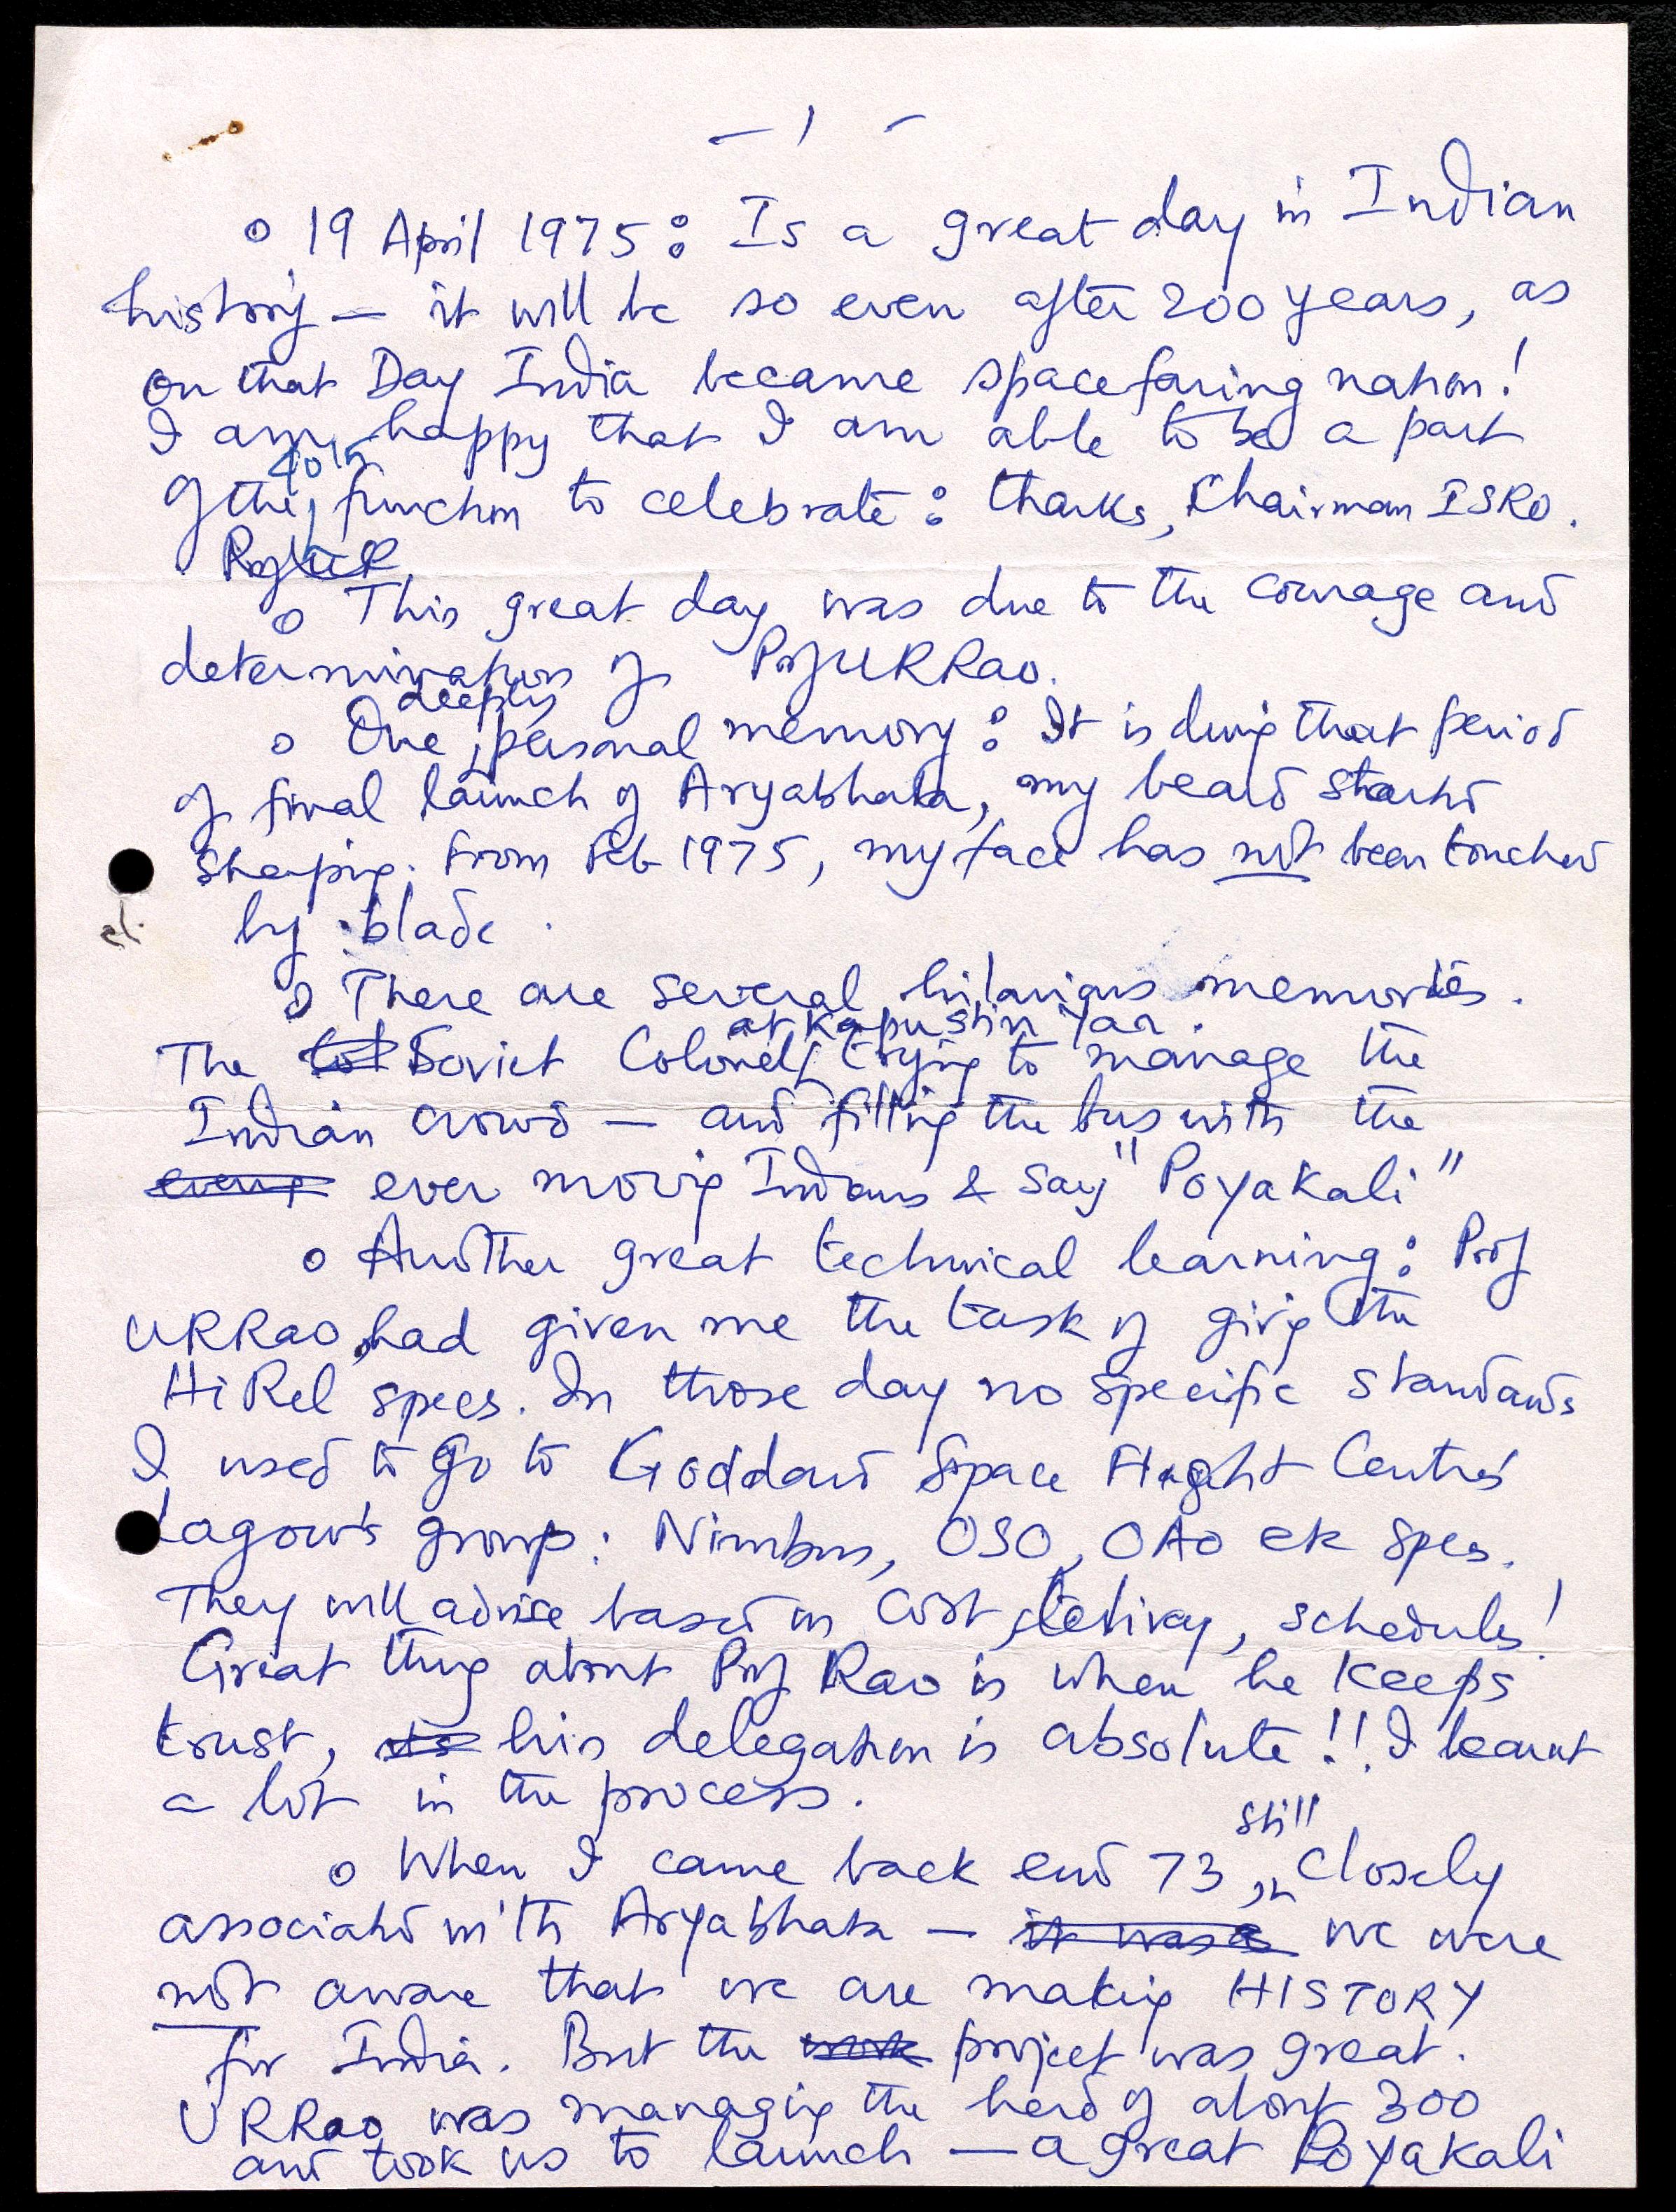 - 1 -
o 19 April 1975: Is a great day in Indian
history - it will be so even after 200 years, as
on that Day India became spacefaring nation!
I am happy that I am able to be a part
40th
of the function to celebrate: thanks, Chairman ISRO.
o This great day was due to the courage and
determination of Prof URRao.
deeply
o One personal memory: It is during that period
of final launch of Aryabhata, my beard started
shaping. From Feb 1975, my face has not been touched
by blade.
o There are several hilarious memories.
at Kapustin Yar.
The Soviet Colonel trying to manage the
Indian crowd - and filling the bus with the
ever moving Indians & say "Poyakali"
o Another great technical learning: Prof
URRao had given me the task of giving the
HiRel specs. In those day no specific standards
I used to go to Goddard Space Flight Centre's
Lagow's group: Nimbus, OSO, OAO etc specs.
They will advise based on cost, delivery, schedules!
Great thing about Prof Rao is when he keeps
trust, his delegation is absolute!! I learnt
a lot in the process.
still
o When I came back end 73, closely
associated with Aryabhata - we were
not aware that we are making HISTORY
for India. But the project was great.
URRao was managing the herd of about 300
and took us to launch - a great Poyakali